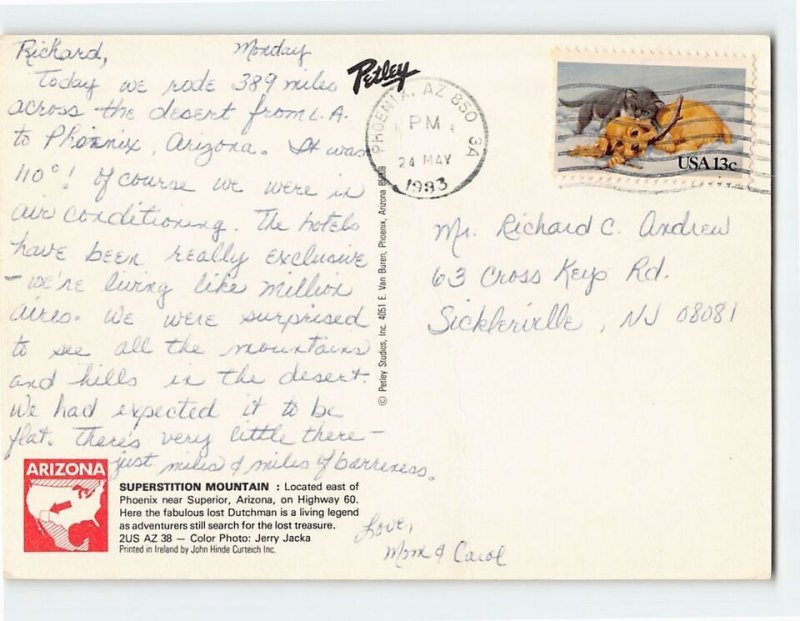 Richard, Monday
Today we rode 389 miles
across the desert from L.A.
to Phoenix, Arizona. It was
110°! Of course we were in
air conditioning. The hotels
have been really exclusive
- we're living like million
aires. We were surprised
to see all the mountains
and hills in the desert.
We had expected it to be
flat. There's very little there -
just miles & miles of barreness.
Love,
Mom & Carol
ARIZONA
SUPERSTITION MOUNTAIN : Located east of
Phoenix near Superior, Arizona, on Highway 60.
Here the fabulous lost Dutchman is a living legend
as adventurers still search for the lost treasure.
2US AZ 38 — Color Photo: Jerry Jacka
Printed in Ireland by John Hinde Curteich Inc.
Petley
© Petley Studios, Inc. 4051 E. Van Buren, Phoenix, Arizona
PHOENIX, AZ 850 3A
PM
24 MAY
1983
USA 13c
Mr. Richard C. Andrew
63 Cross Keys Rd.
Sicklerville, NJ 08081